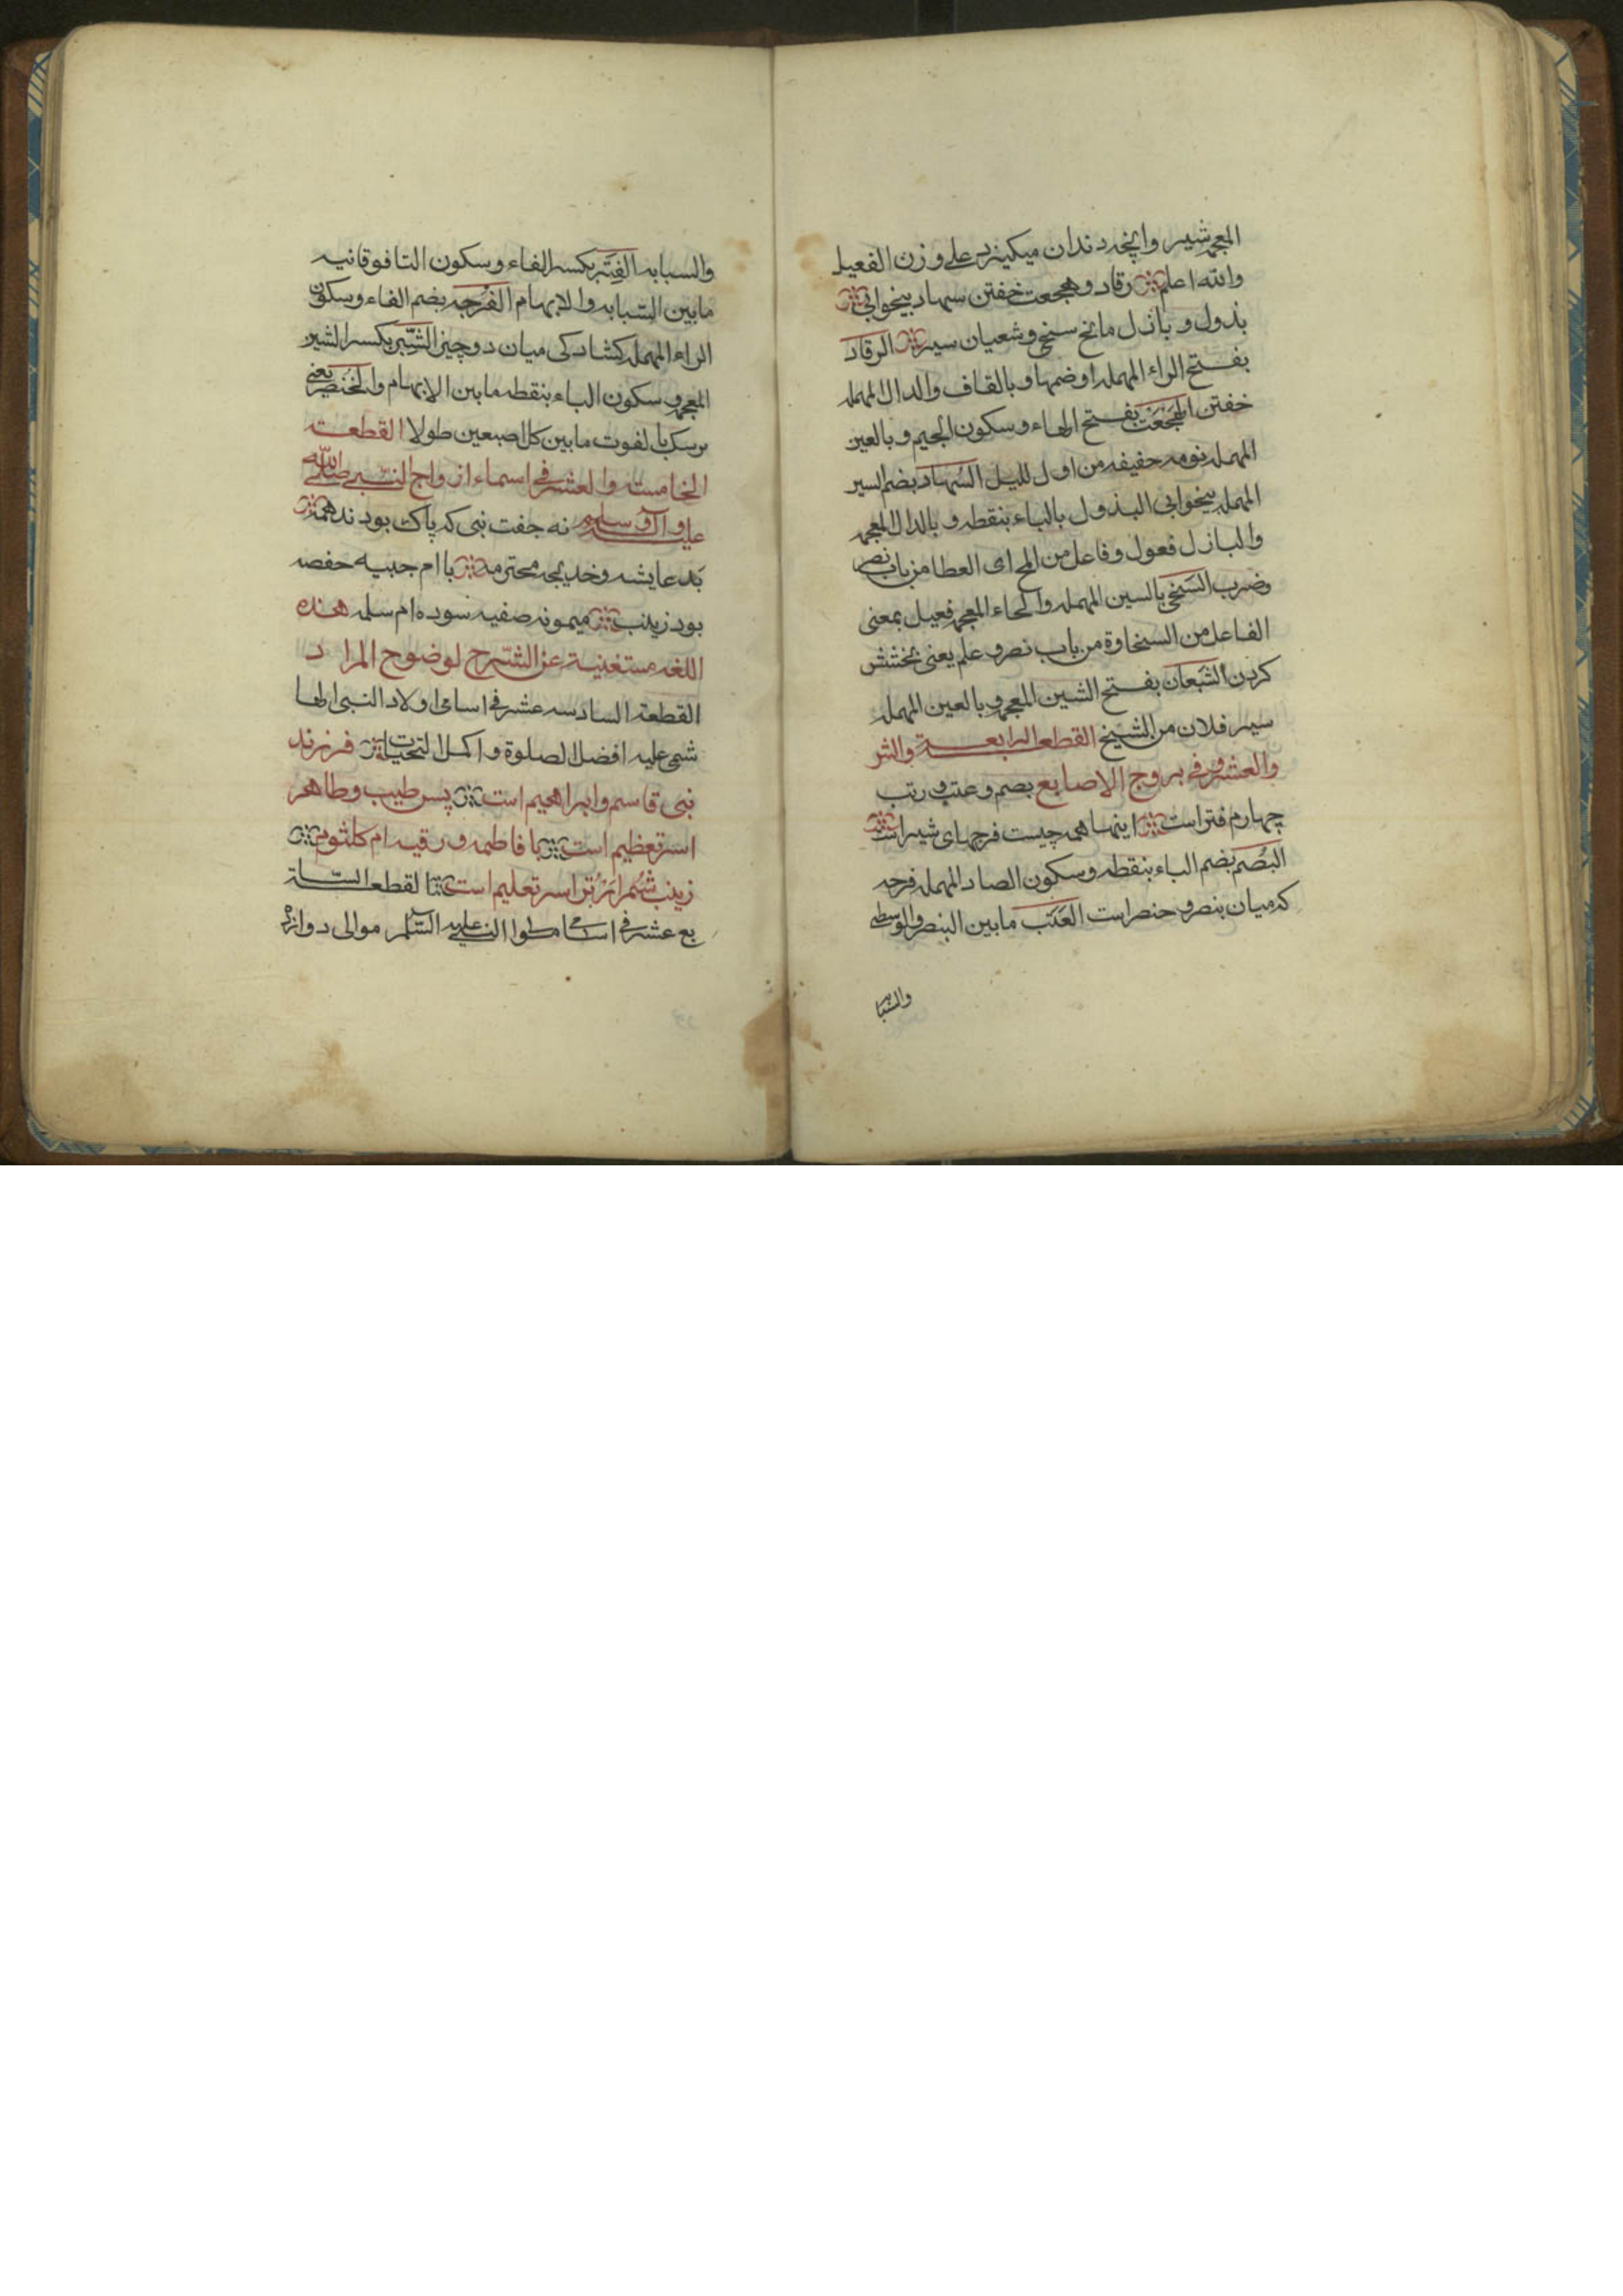 المعجمه شیر و آنچه دندان میکیزس علی وزن الفعیل
والله اعلم رقاد و هجعت خفتن سهاد بیخوابی
بذول و باذل مانح سخی و شعبان سیر الرقاد
بفتح الراء المهمله او ضمها و بالقاف والدال المهمله
خفتن الهجعت بفتح الهاء و سکون الجیم و بالعین
المهمله نومه حفیفه من اول للیل السهاد بضم السیر
المهمله بیخوابی البذول بالباء بنقطه و بالدال المعجمه
والبازل فعول و فاعل من المح ای العطا من باب نصر
وضرب السخی بالسین المهمله والحاء المعجمه فعیل بمعنی
الفاعل من السخاوة من باب نصر و علم یعنی بخشش
کردن الشبعان بفتح الشین المعجمه و بالعین المهمله
سیر فلان من الشیخ القطعه الرابعة والثر
والعشرون فی بروج الاصابع بصم و عتب و رتب
چهارم فتر است اینها همه چیست فرجهای شیر است
البصم بضم الباء بنقطه و سکون الصاد المهمله فرجه
که میان بنصر و حنصر است العتب مابین البنصر والوسطی
والسبابه
والسبابه الفتر بکسر الفاء و سکون التا فوقانیه
مابین السبابه والابهام الفرجه بضم الفاء و سکون
الراء المهمله کشادکی میان دو چیز الشبر بکسر الشین
المعجمه و سکون الباء بنقطه مابین الابهام والخنصر یعنی
بالفوت مابین کل اصبعین طولا القطعة
الخامسته والعشر فی اسماء ازواج النبی صلی الله
علیه و آله و سلم نه جفت نبی که پاک بودند همه
بد عایشه و خدیجه محترمه با ام حبیبه حفصه
بود زینب میمونه صفیه سوده ام سلمه هذه
اللغه مستغنیة عن الشرح لوضوح المراد
القطعة السادسه عشر فی اسامی اولاد النبی الها
شمی علیه افضل الصلوة و اکمل التحیات فرزند
نبی قاسم و ابراهیم است پس طیب و طاهر
اسر تعظیم است با فاطمه و رقیه ام کلثوم
زینب شمر ار تر اسر تعلیم است القطعه السا
بع عشر فی اسامی النبی علیه السلم موالی دوازده